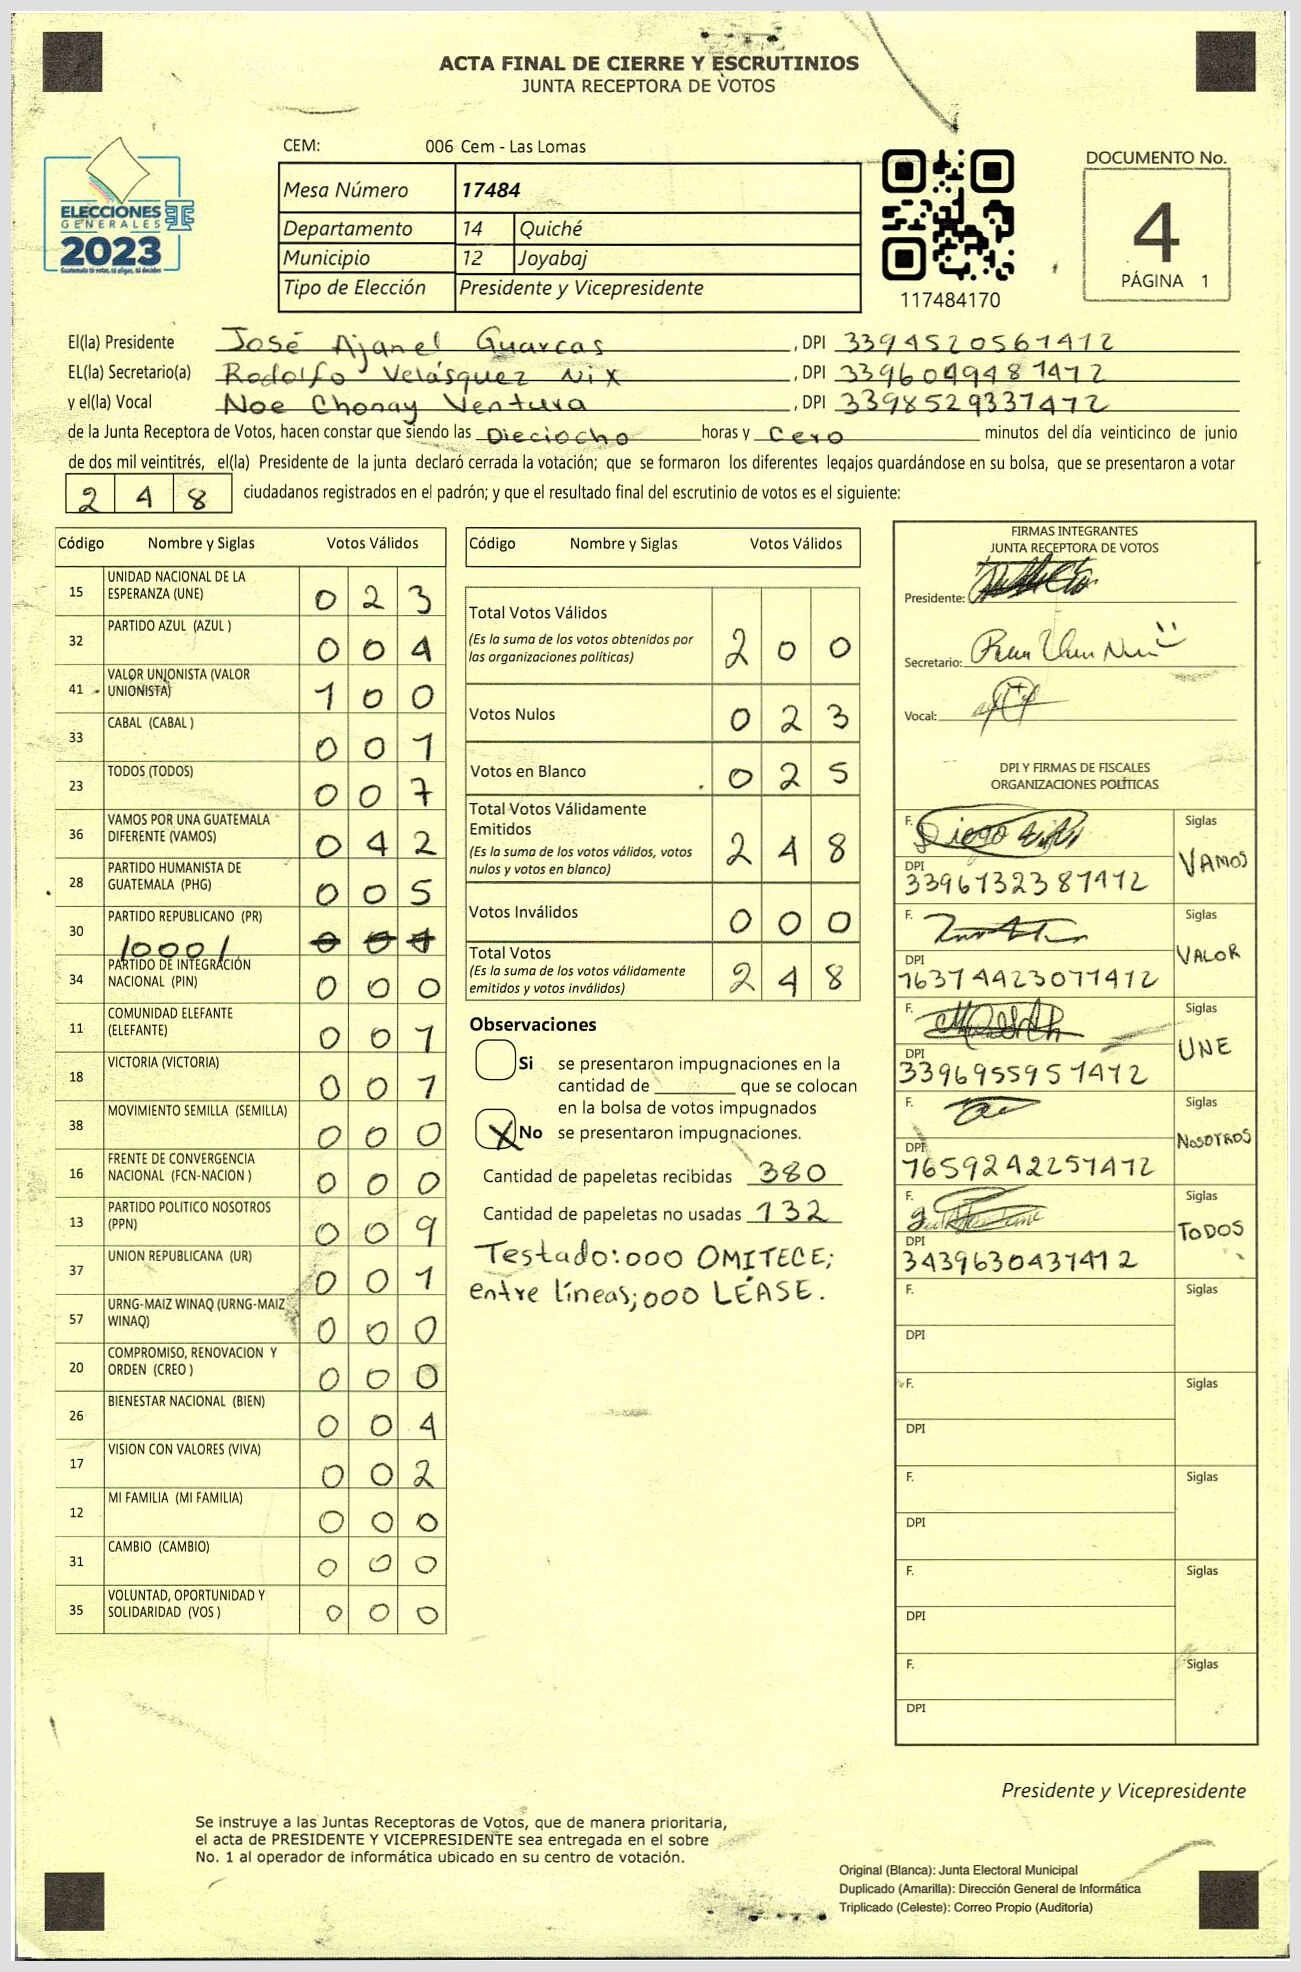 ACTA FINAL DE CIERRE Y ESCRUTINIOS
JUNTA RECEPTORA DE VOTOS
ELECCIONES
GENERALES
2023
Guatemala tú votas, tú eliges, tú decides
CEM: 006 Cem - Las Lomas
Mesa Número 17484
Departamento 14 Quiché
Municipio 12 Joyabaj
Tipo de Elección Presidente y Vicepresidente
117484170
DOCUMENTO No.
4
PÁGINA 1
El(la) Presidente José Ajanel Guarcas, DPI 3394520561412
EL(la) Secretario(a) Rodolfo Velásquez Nix, DPI 3396049481412
y el(la) Vocal Noe Chonay Ventura, DPI 3398529331412
de la Junta Receptora de Votos, hacen constar que siendo las Dieciocho horas y Cero minutos del día veinticinco de junio
de dos mil veintitrés, el(la) Presidente de la junta declaró cerrada la votación; que se formaron los diferentes legajos guardándose en su bolsa, que se presentaron a votar
2 4 8 ciudadanos registrados en el padrón; y que el resultado final del escrutinio de votos es el siguiente:
Código Nombre y Siglas Votos Válidos
15 UNIDAD NACIONAL DE LA
ESPERANZA (UNE) 0 2 3
32 PARTIDO AZUL (AZUL ) 0 0 4
41 VALOR UNIONISTA (VALOR
UNIONISTA) 1 0 0
33 CABAL (CABAL ) 0 0 1
23 TODOS (TODOS) 0 0 7
36 VAMOS POR UNA GUATEMALA
DIFERENTE (VAMOS) 0 4 2
28 PARTIDO HUMANISTA DE
GUATEMALA (PHG) 0 0 5
30 PARTIDO REPUBLICANO (PR)
/000/ 0 0 1
34 PARTIDO DE INTEGRACIÓN
NACIONAL (PIN) 0 0 0
11 COMUNIDAD ELEFANTE
(ELEFANTE) 0 0 1
18 VICTORIA (VICTORIA) 0 0 1
38 MOVIMIENTO SEMILLA (SEMILLA) 0 0 0
16 FRENTE DE CONVERGENCIA
NACIONAL (FCN-NACION ) 0 0 0
13 PARTIDO POLITICO NOSOTROS
(PPN) 0 0 9
37 UNION REPUBLICANA (UR) 0 0 1
57 URNG-MAIZ WINAQ (URNG-MAIZ
WINAQ) 0 0 0
20 COMPROMISO, RENOVACION Y
ORDEN (CREO ) 0 0 0
26 BIENESTAR NACIONAL (BIEN) 0 0 4
17 VISION CON VALORES (VIVA) 0 0 2
12 MI FAMILIA (MI FAMILIA) 0 0 0
31 CAMBIO (CAMBIO) 0 0 0
35 VOLUNTAD, OPORTUNIDAD Y
SOLIDARIDAD (VOS ) 0 0 0
Código Nombre y Siglas Votos Válidos
Total Votos Válidos
(Es la suma de los votos obtenidos por
las organizaciones políticas) 2 0 0
Votos Nulos 0 2 3
Votos en Blanco 0 2 5
Total Votos Válidamente
Emitidos
(Es la suma de los votos válidos, votos
nulos y votos en blanco) 2 4 8
Votos Inválidos 0 0 0
Total Votos
(Es la suma de los votos válidamente
emitidos y votos inválidos) 2 4 8
Observaciones
Si se presentaron impugnaciones en la
cantidad de ________ que se colocan
en la bolsa de votos impugnados
X No se presentaron impugnaciones.
Cantidad de papeletas recibidas 380
Cantidad de papeletas no usadas 132
Testado: 000 OMITECE;
entre líneas; 000 LÉASE.
FIRMAS INTEGRANTES
JUNTA RECEPTORA DE VOTOS
Presidente:
Secretario:
Vocal:
DPI Y FIRMAS DE FISCALES
ORGANIZACIONES POLÍTICAS
F. Diego Siglas
VAMOS
DPI
3396732387412
F. Siglas
VALOR
DPI
1637449230771412
F. Siglas
UNE
DPI
3396955951412
F. Siglas
NOSOTROS
DPI
1659242251412
F. Siglas
TODOS
DPI
3439630431412
F. Siglas
DPI
F. Siglas
DPI
F. Siglas
DPI
F. Siglas
DPI
F. Siglas
DPI
Presidente y Vicepresidente
Se instruye a las Juntas Receptoras de Votos, que de manera prioritaria,
el acta de PRESIDENTE Y VICEPRESIDENTE sea entregada en el sobre
No. 1 al operador de informática ubicado en su centro de votación.
Original (Blanca): Junta Electoral Municipal
Duplicado (Amarilla): Dirección General de Informática
Triplicado (Celeste): Correo Propio (Auditoria)